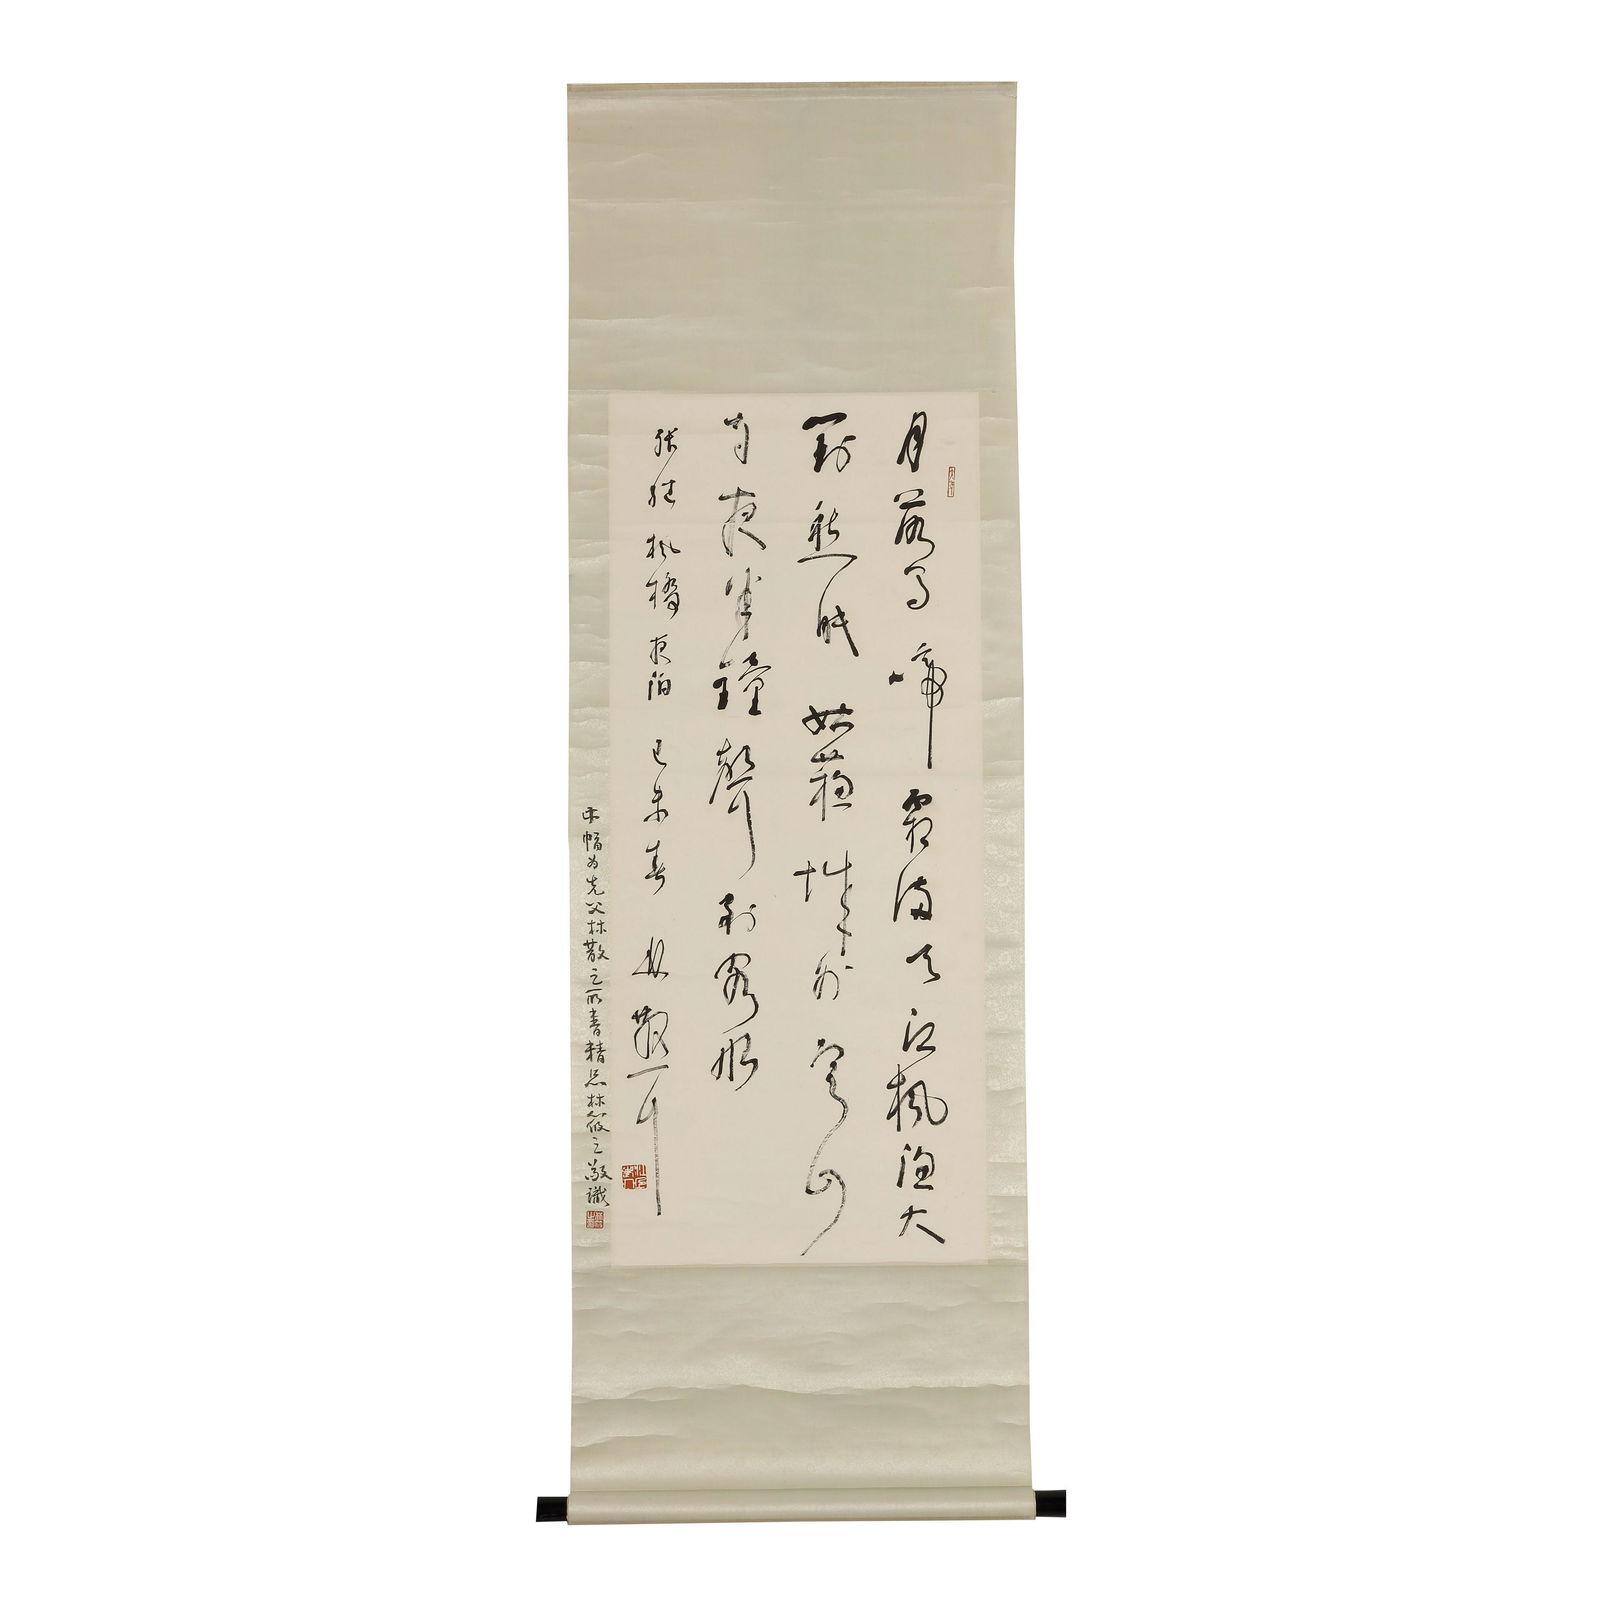 月落烏啼霜滿天江楓漁火
對愁眠姑蘇城外寒山
寺夜半鐘聲到客船
張繼楓橋夜泊 己未春 林散耳
本幅为先父林散之所書精品林筱之敬識